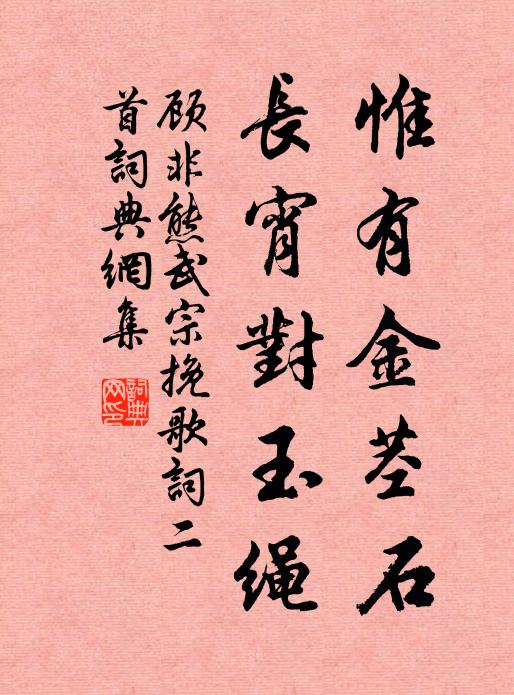 惟有金茎石
長宵對玉绳
顾非熊武宗挽歌詞二
首詞典網集
詞典
网印